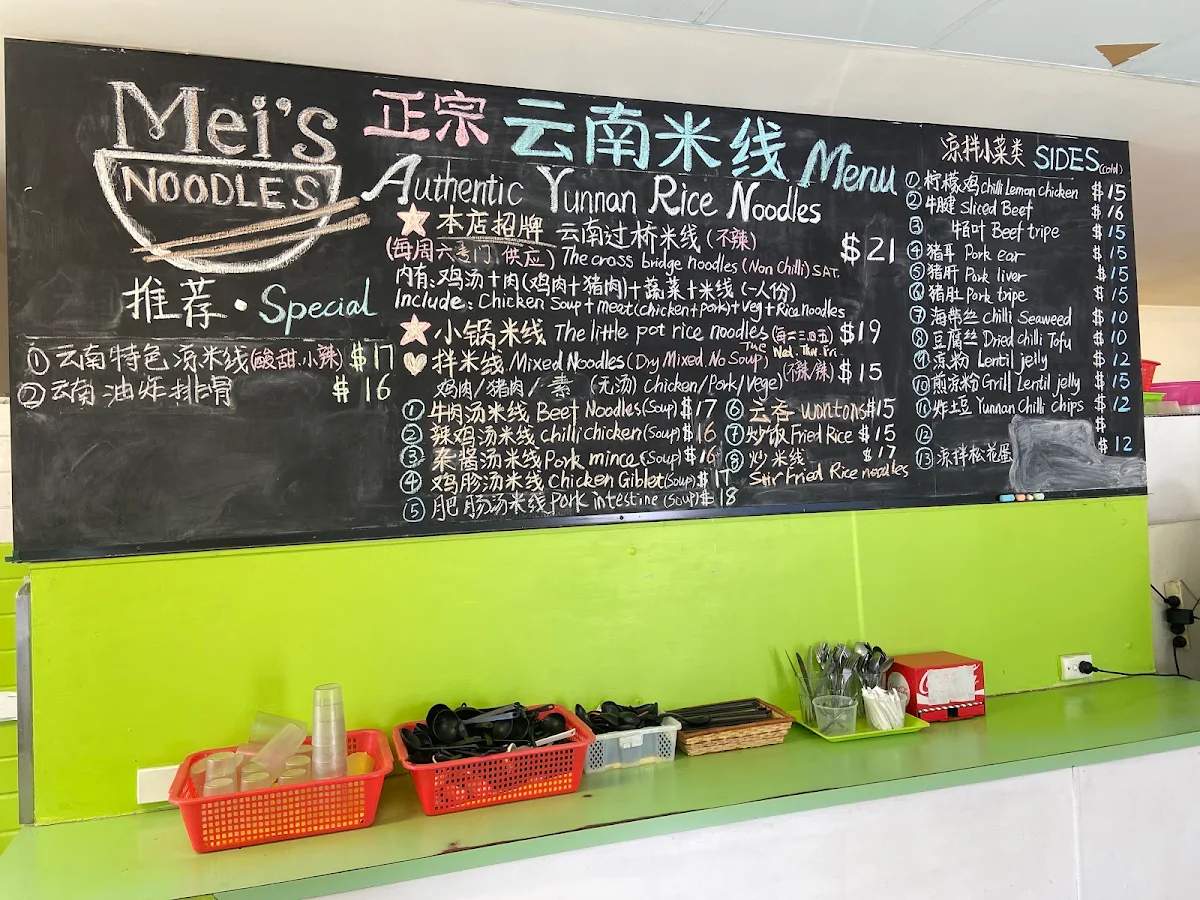 Mei's
NOODLES
推荐·Special
①云南特色凉米线(酸甜.小辣) $17
②云南油炸排骨 $16
正宗 云南米线 Menu
Authentic Yunnan Rice Noodles
本店招牌 云南过桥米线(不辣) $21
(每周六专门供应) The cross bridge noodles (Non Chilli) SAT.
内有:鸡汤+肉(鸡肉+猪肉)+蔬菜+米线(一人份)
Include: Chicken Soup+meat(chicken+pork)+veg+Rice noodles
小锅米线 The little pot rice noodles (每二三四五) $19
Tue Wed. Thu. Fri.
拌米线 Mixed Noodles (Dry Mixed. No Soup) (不辣/辣) $15
鸡肉/猪肉/素 (无汤) Chicken/Pork/Vege)
①牛肉汤米线 Beef Noodles (Soup) $17
②辣鸡汤米线 chilli chicken (Soup) $16
③杂酱汤米线 Pork mince (Soup) $16
④鸡肠汤米线 Chicken Giblet (Soup) $17
⑤肥肠汤米线 Pork intestine (Soup) $18
⑥云吞 wontons $15
⑦炒饭 Fried Rice $15
⑧炒米线 $17
Stir Fried Rice noodles
凉拌小菜类 SIDES (cold)
①柠檬鸡 chilli Lemon chicken $15
②牛腱 Sliced Beef $16
③ Beef tripe $15
④猪耳 Pork ear $15
⑤猪肝 Pork liver $15
⑥猪肚 Pork tripe $15
⑦海带丝 chilli Seaweed $10
⑧豆腐丝 Dried chilli Tofu $10
⑨凉粉 Lentil jelly $12
⑩煎凉粉 Grill Lentil jelly $15
⑪炸土豆 Yunnan Chilli chips $12
⑫ $
⑬凉拌松花蛋 $12